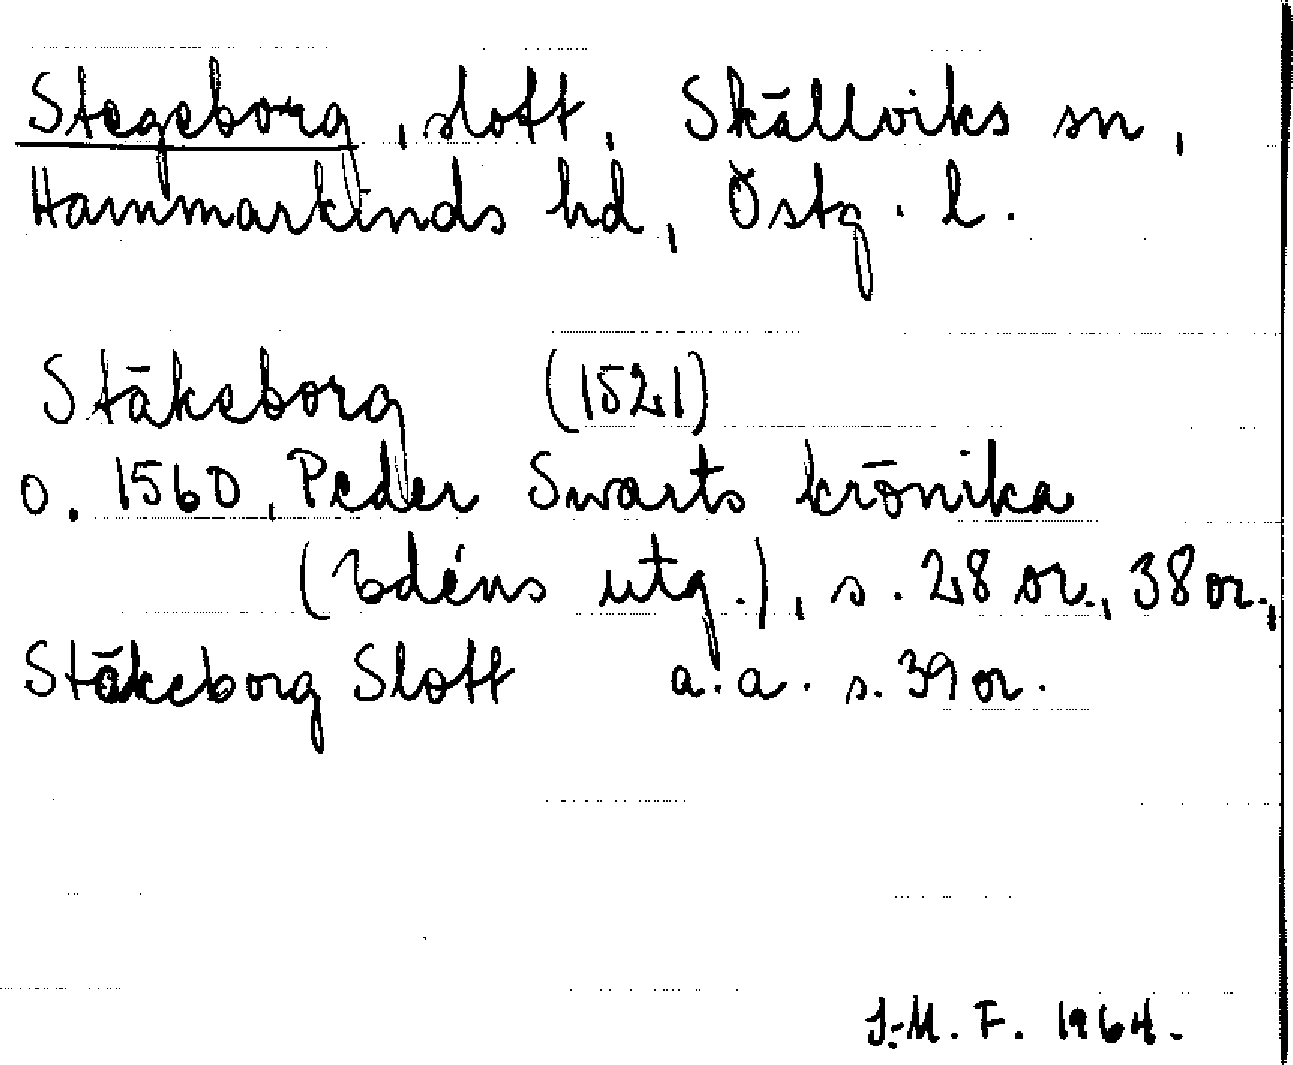 Stegeborg, slott, Skällviks sn,
Hammarkinds hd, Östg. l.
Stäkeborg (1521)
o. 1560, Peder Swarts krönika
(Edéns utg.), s. 28 or., 38 or.,
Stäkeborg Slott a.a. s. 39 or.
J.-M. F. 1964.